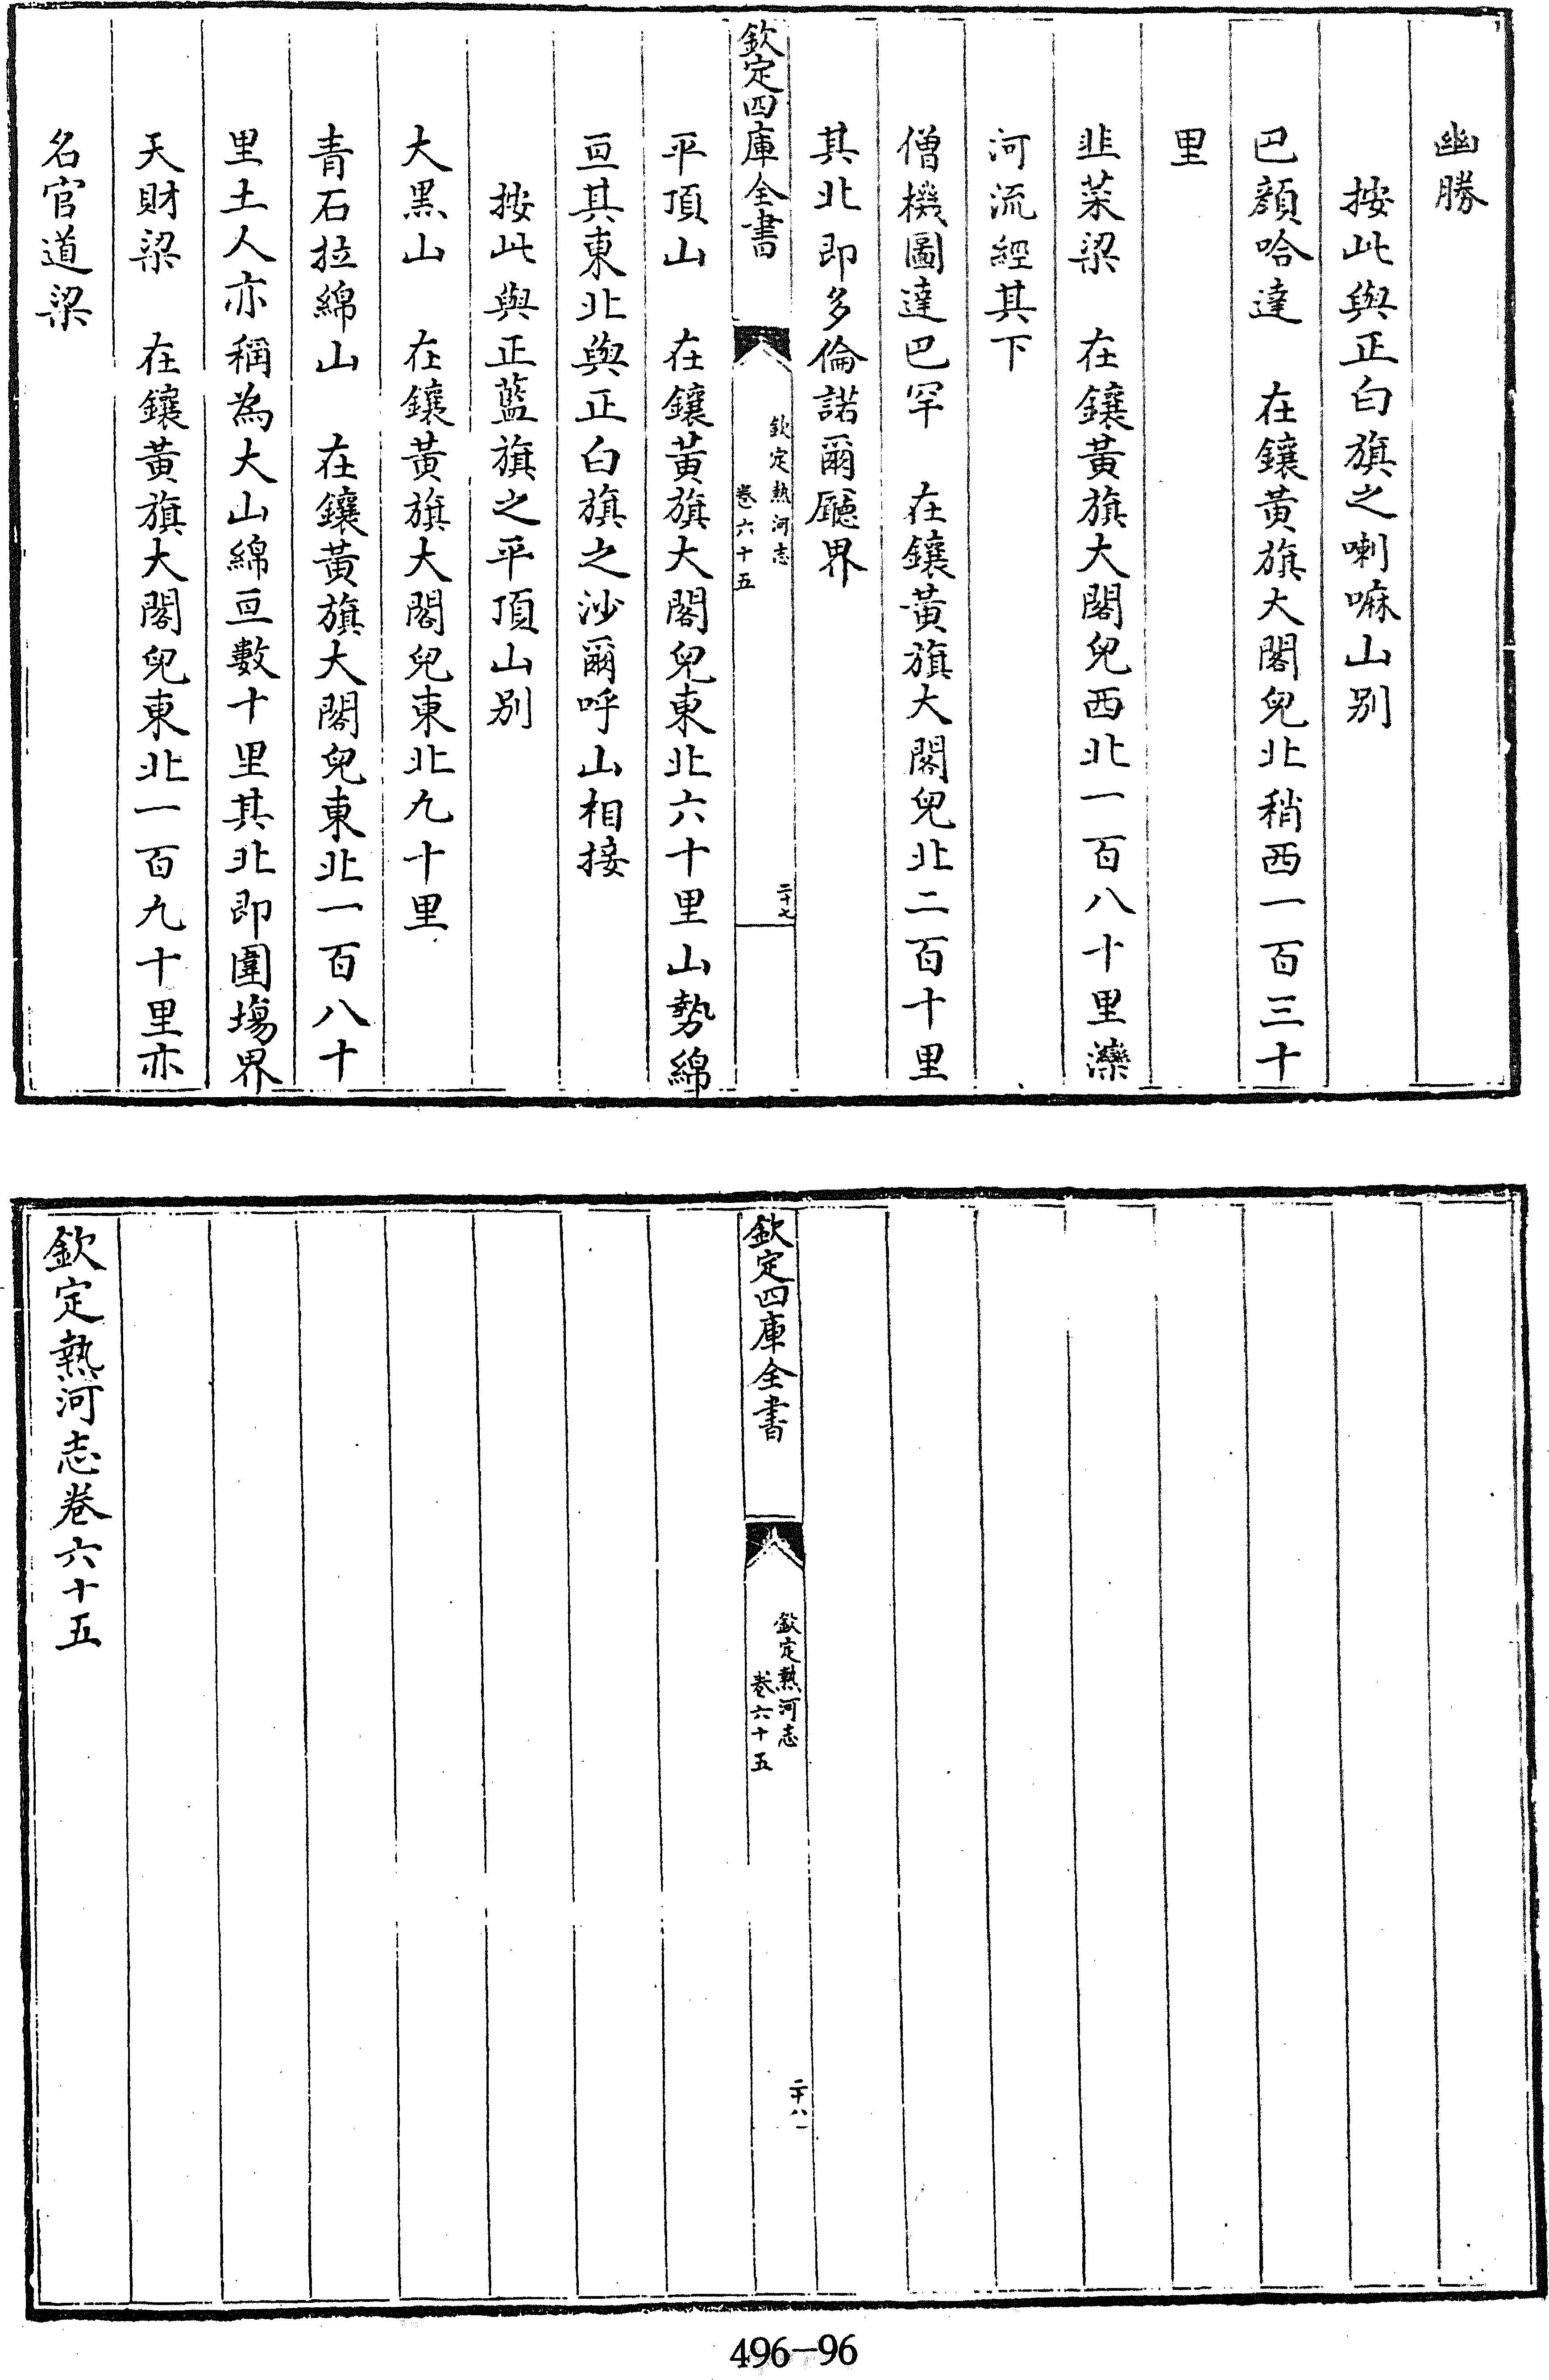 幽勝
按此與正白旗之喇嘛山别
巴顔哈達　在鑲黃旗大閣兒北稍西一百三十
里
韭菜梁　在鑲黃旗大閣兒西北一百八十里灤
河流經其下
僧機圖達巴罕　在鑲黃旗大閣兒北二百十里
其北即多倫諾爾廳界
欽定四庫全書
欽定熱河志
卷六十五
二十七
平頂山　在鑲黃旗大閣兒東北六十里山勢綿
亘其東北與正白旗之沙爾呼山相接
按此與正藍旗之平頂山别
大黑山　在鑲黃旗大閣兒東北九十里
青石拉綿山　在鑲黃旗大閣兒東北一百八十
里土人亦稱為大山綿亘數十里其北即圍場界
天財梁　在鑲黃旗大閣兒東北一百九十里亦
名官道梁
欽定四庫全書
欽定熱河志
卷六十五
二十八
欽定熱河志卷六十五
496-96